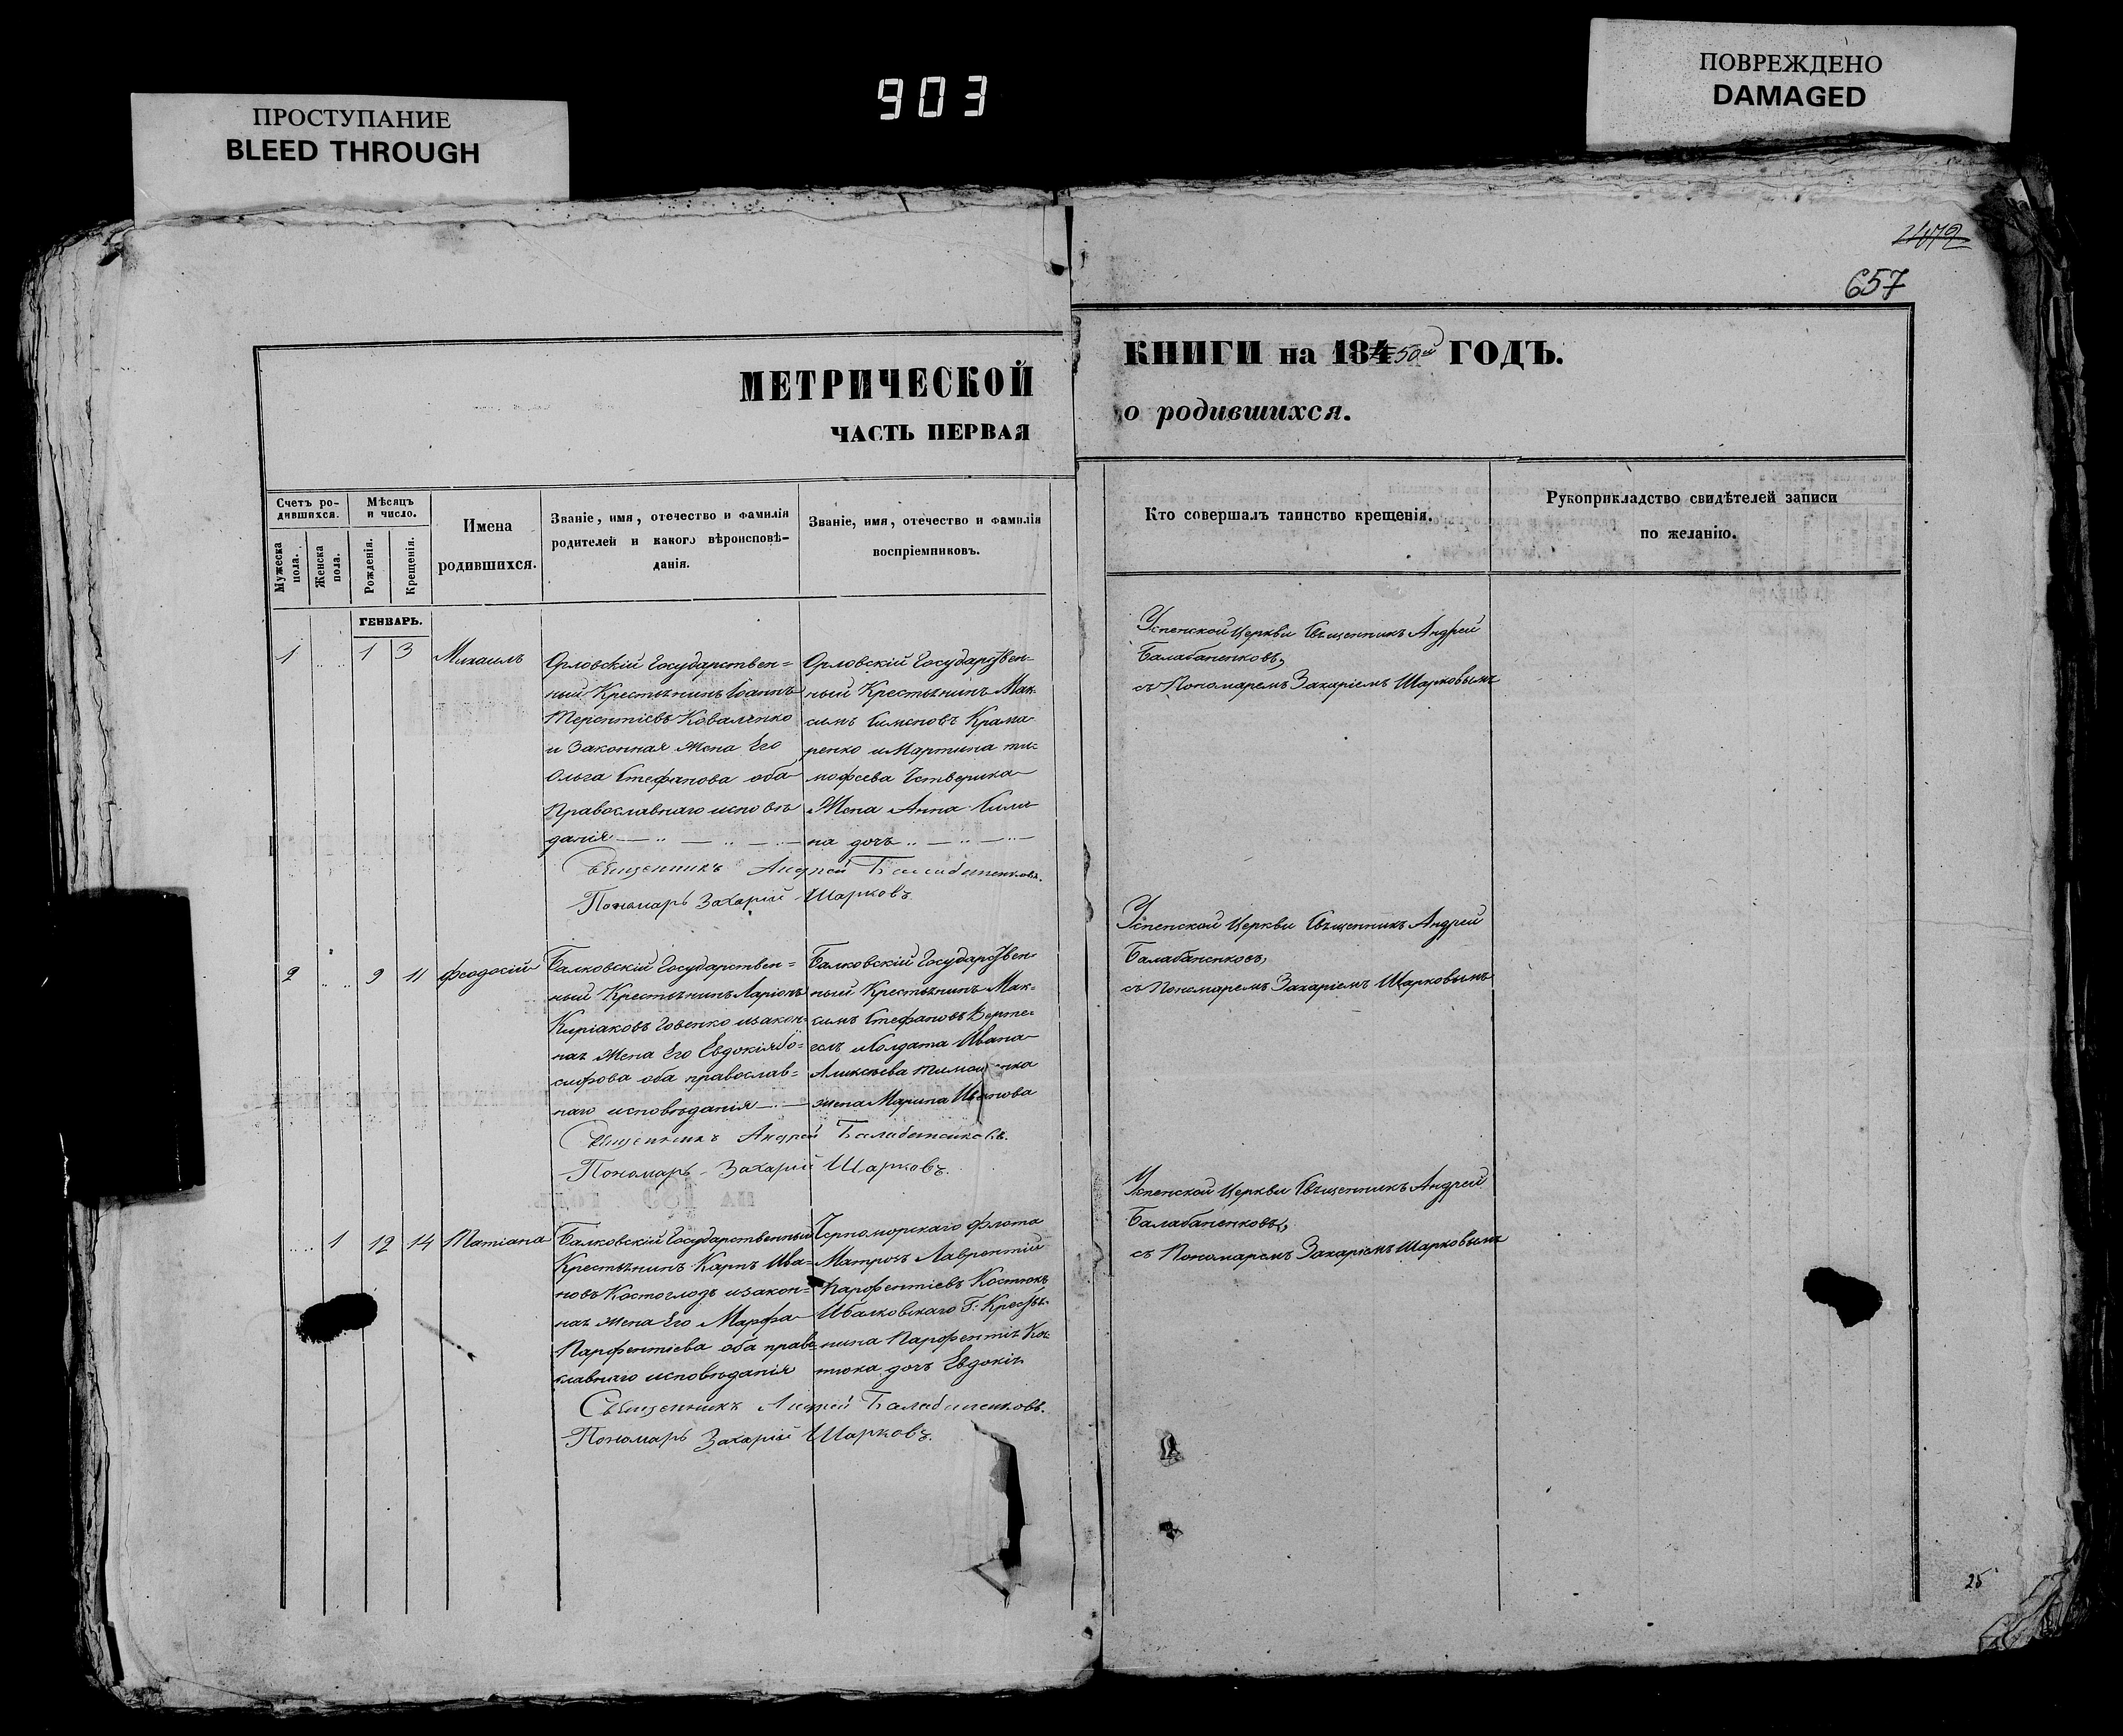 ПРОСТУПАНИЕ
BLEED THROUGH
903
ПОВРЕЖДЕНО
DAMAGED
657
МЕТРИЧЕСКОЙ
ЧАСТЬ ПЕРВАЯ
КНИГИ на 184 50й ГОДЪ.
о родившихся.
Счетъ ро-
дившихся.
Мужеска
пола.
Женска
пола.
Мѣсяцъ
и число.
Рожденія.
Крещенія.
Имена
родившихся.
Званіе, имя, отечество и фамилія
родителей и какого вѣроисповѣ-
данія.
Званіе, имя, отечество и фамилія
воспріемниковъ.
Кто совершалъ таинство крещенія.
Рукоприкладство свидѣтелей записи
по желанію.
ГЕНВАРЬ.
1 1 3 Михаилъ
Орловскій Государствен=
ный Крестьянинъ Іоаннъ
Терентіевъ Коваленко
и Законная Жена Его
Ольга Стефанова оба
Православнаго исповѣ
данія
Орловскій Государствен-
ный Крестьянинъ Мак-
симъ Симеоновъ Крама
ренко и Мартина ти-
мофеева Четверика
Жена Анна
на дочь
Священникъ Андрей Балабаненковъ.
Пономарь Захарій Шарковъ.
Успенской Церкви Священникъ Андрей
Балабаненковъ,
съ Пономаремъ Захаріемъ Шарковымъ
2 9 11 Феодосій
Балковскій Государствен=
ный Крестьянинъ Ларіонъ
Киріаковъ Говенко и закон=
ная Жена Его Евдокія Іо=
сифова оба православ=
наго исповѣданія
Балковскій Государствен
ный Крестьянинъ Мак=
симъ Стефановъ Верте=
гелъ и Солдата Ивана
Алексѣева
жена Марина Иванова
Священникъ Андрей Балабаненковъ.
Пономарь Захарій Шарковъ.
Успенской Церкви Священникъ Андрей
Балабаненковъ,
съ Пономаремъ Захаріемъ Шарковымъ
1 12 14 Татіана
Балковскій Государственный
Крестьянинъ Карпъ Ива=
новъ Костоглодъ и закон=
ная жена Его Марфа
Парфентіева оба право-
славнаго исповѣданія
Черноморскаго флота
Матрозъ Лаврентій
Парфентіевъ Костюкъ
и Балковскаго Г. Крестья-
нина Парфентія Кос-
тюка дочь Евдокія
Священникъ Андрей Балабаненковъ.
Пономарь Захарій Шарковъ.
Успенской Церкви Священникъ Андрей
Балабаненковъ,
съ Пономаремъ Захаріемъ Шарковымъ
25